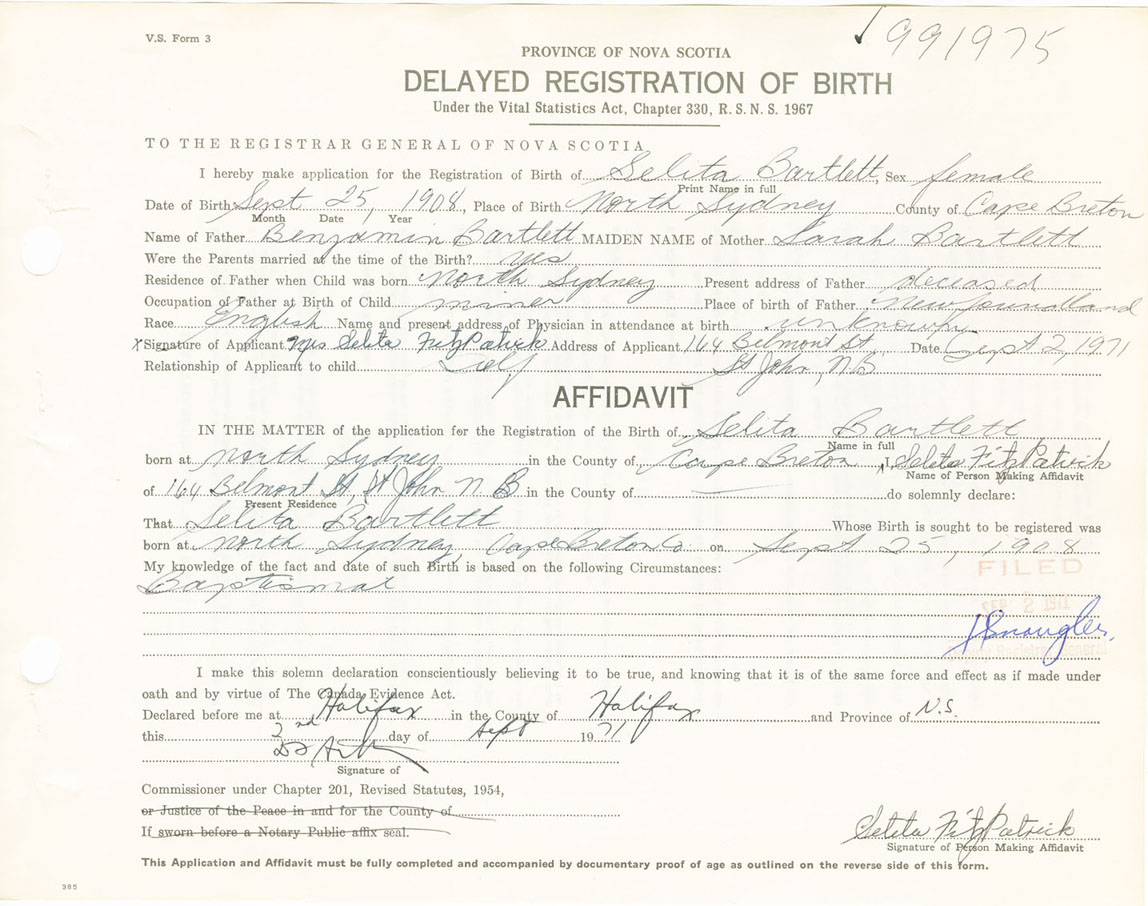 V.S. Form 3
991975
PROVINCE OF NOVA SCOTIA
DELAYED REGISTRATION OF BIRTH
Under the Vital Statistics Act, Chapter 330, R.S.N.S. 1967
TO THE REGISTRAR GENERAL OF NOVA SCOTIA
I hereby make application for the Registration of Birth of Selita Bartlett, Sex female
Print Name in full
Date of Birth Sept 25, 1908, Place of Birth North Sydney County of Cape Breton
Month Date Year
Name of Father Benjamin Bartlett MAIDEN NAME of Mother Sarah Bartlett
Were the Parents married at the time of the Birth? yes
Residence of Father when Child was born North Sydney Present address of Father deceased
Occupation of Father at Birth of Child miner Place of birth of Father Newfoundland
Race English Name and present address of Physician in attendance at birth unknown
X Signature of Applicant Mrs Selita FitzPatrick Address of Applicant 164 Belmont St, Date Sept 2, 1971
Relationship of Applicant to child Self St John, N B
AFFIDAVIT
IN THE MATTER of the application for the Registration of the Birth of Selita Bartlett
Name in full
born at North Sydney in the County of Cape Breton, I, Selita FitzPatrick
Name of Person Making Affidavit
of 164 Belmont St, St John N B in the County of do solemnly declare:
Present Residence
That Selita Bartlett Whose Birth is sought to be registered was
born at North Sydney, Cape Breton Co on Sept 25, 1908
My knowledge of the fact and date of such Birth is based on the following Circumstances:
Baptismal
FILED
SEP 2 1971
I make this solemn declaration conscientiously believing it to be true, and knowing that it is of the same force and effect as if made under
oath and by virtue of The Canada Evidence Act.
Declared before me at Halifax in the County of Halifax and Province of N.S.
this 2nd day of Sept 1971
Signature of
Commissioner under Chapter 201, Revised Statutes, 1954,
or Justice of the Peace in and for the County of
If sworn before a Notary Public affix seal.
Selita FitzPatrick
Signature of Person Making Affidavit
This Application and Affidavit must be fully completed and accompanied by documentary proof of age as outlined on the reverse side of this form.
385